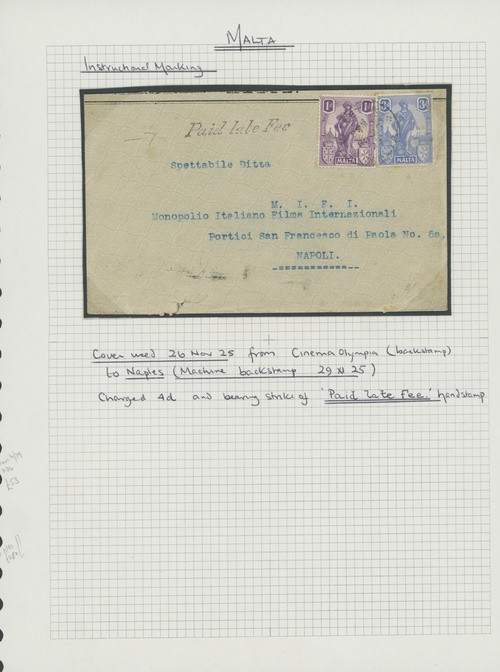 MALTA
Instructional Marking
Paid late Fee
1D 1D
MALTA
3D 3D
MALTA
Spettabile Ditta
M. I. F. I.
Monopolio Italiano Films Internazionali
Portici San Francesco di Paola No. 8a,
NAPOLI.
Cover used 26 Nov 25 from Cinema Olympia (backstamp)
to Naples (Machine backstamp 29 XI 25)
Charged 4d and bearing strike of 'Paid late Fee' handstamp
£53